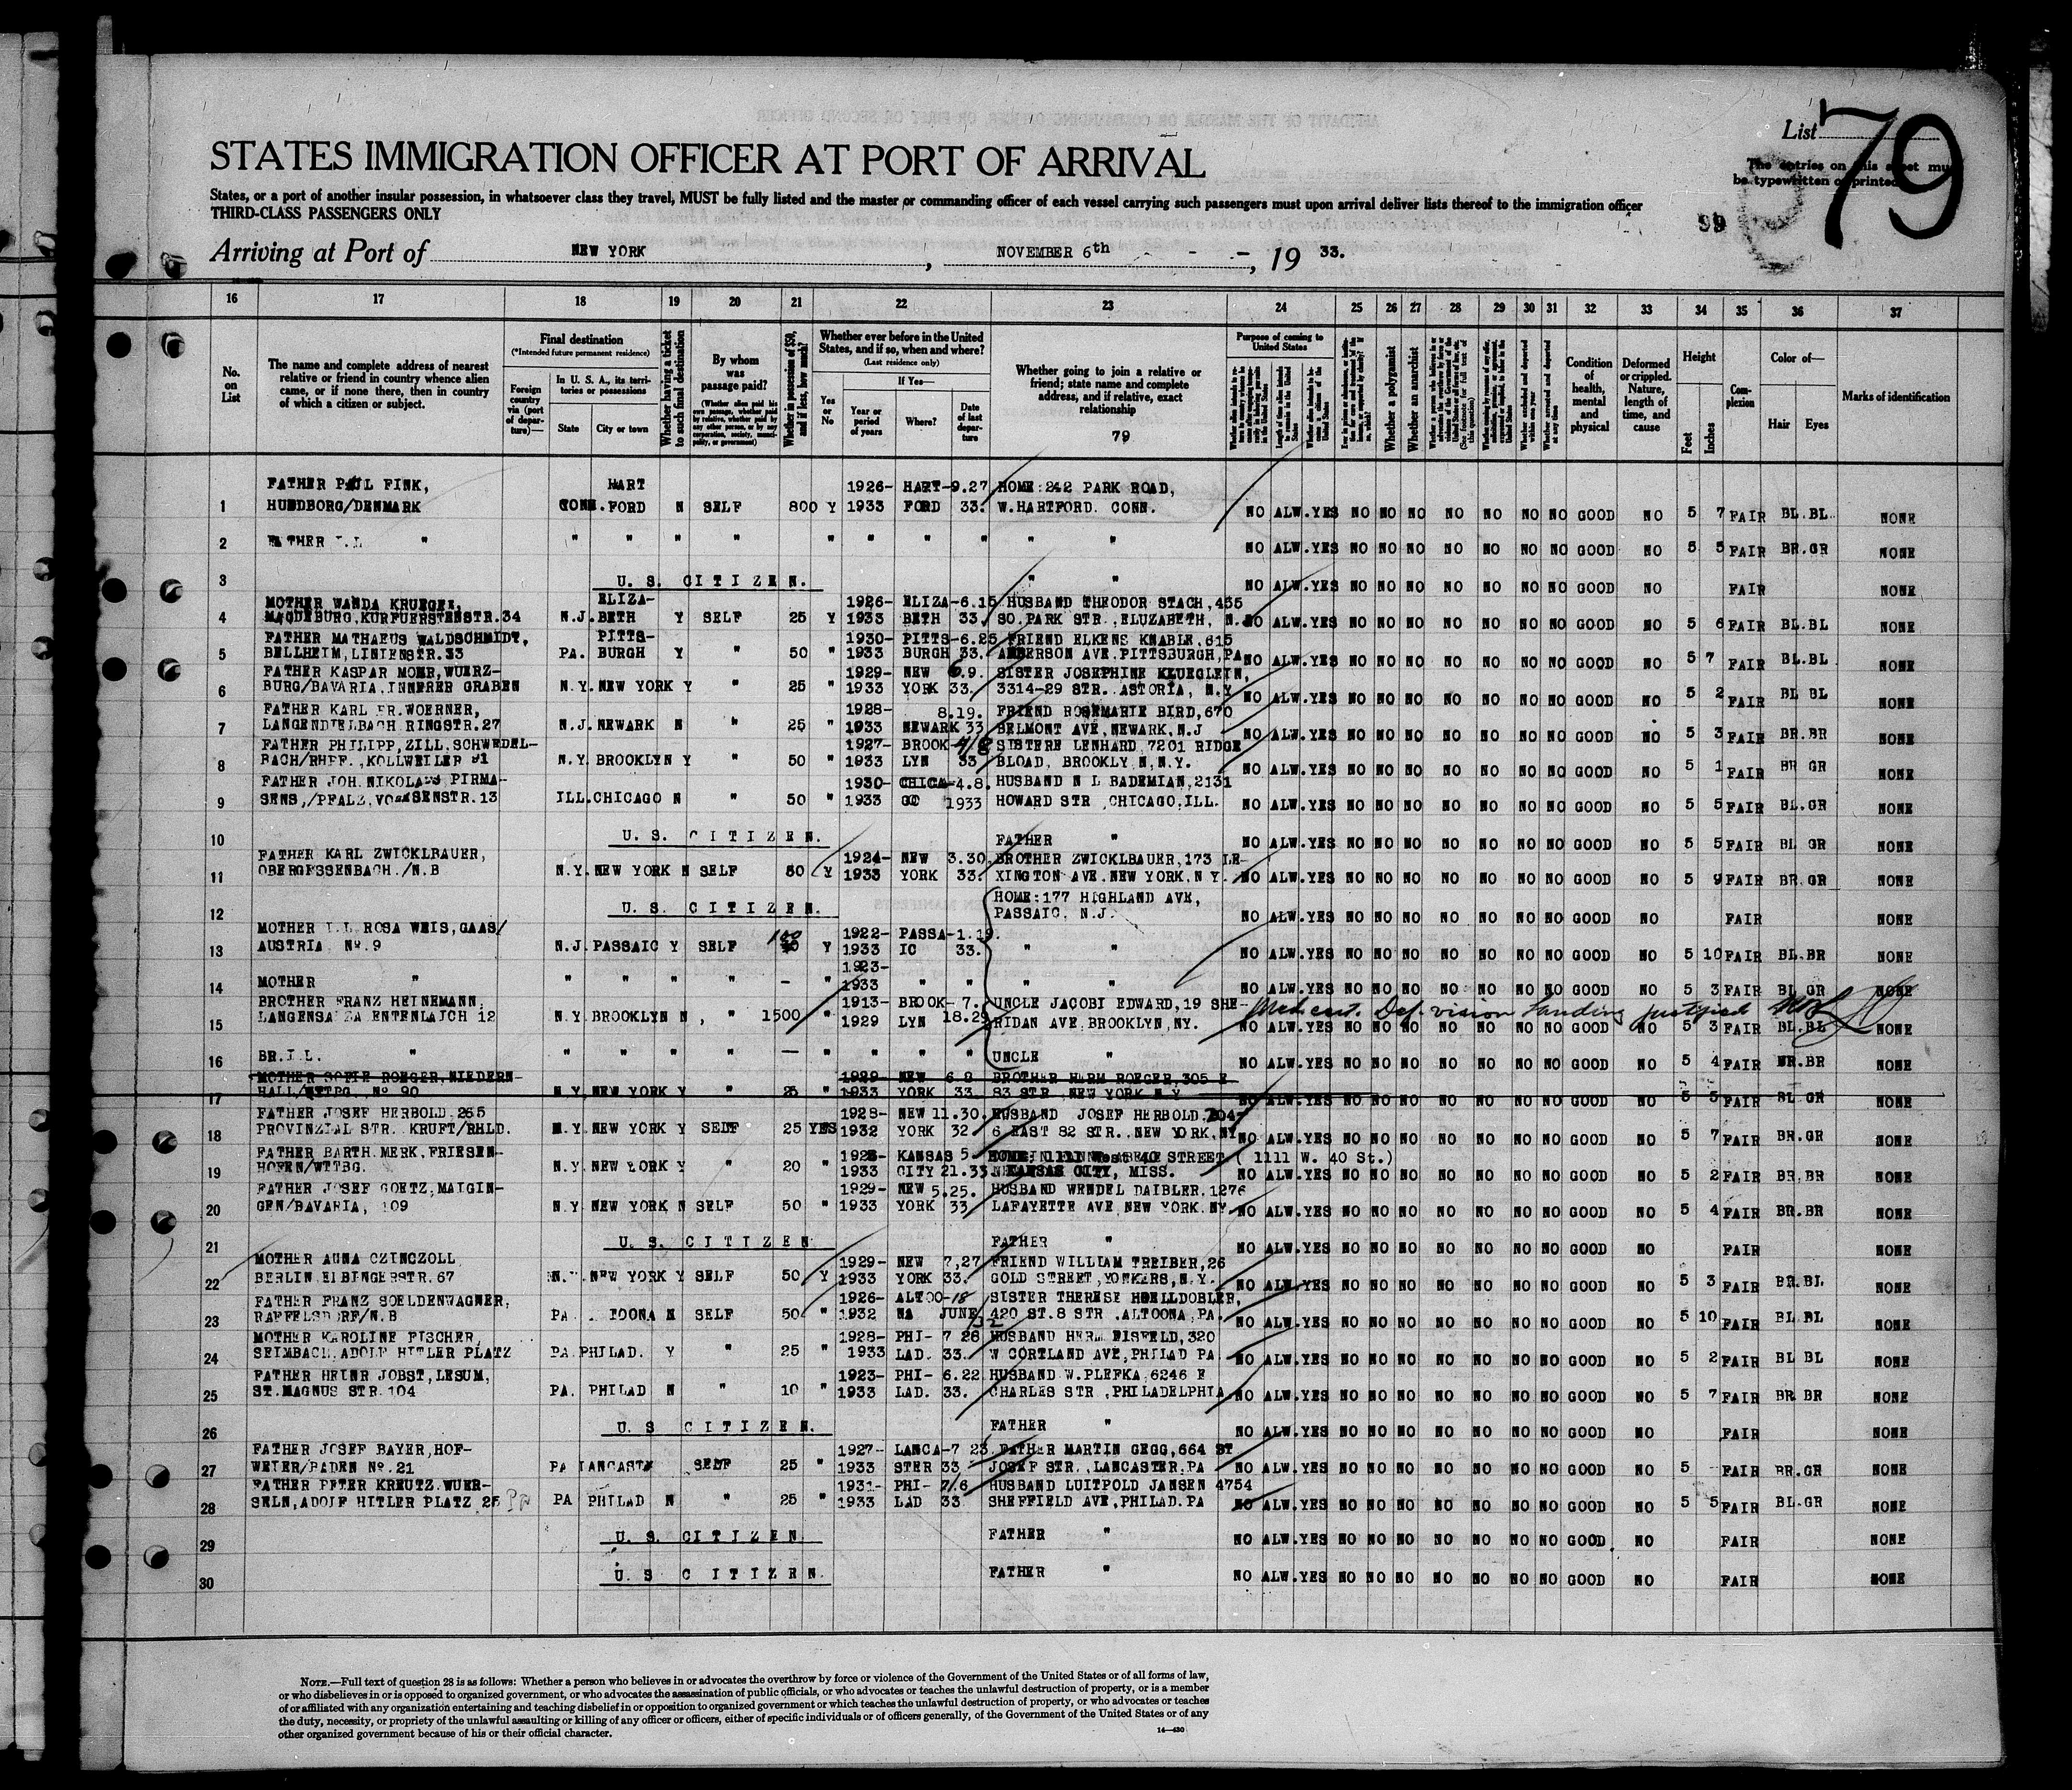 List 79
STATES IMMIGRATION OFFICER AT PORT OF ARRIVAL
The entries on this sheet must
be typewritten or printed
States, or a port of another insular possession, in whatsoever class they travel, MUST be fully listed and the master or commanding officer of each vessel carrying such passengers must upon arrival deliver lists thereof to the immigration officer
THIRD-CLASS PASSENGERS ONLY
99
Arriving at Port of NEW YORK, NOVEMBER 6th - - -, 19 33.
16 17 18 19 20 21 22 23 24 25 26 27 28 29 30 31 32 33 34 35 36 37
No. on List
The name and complete address of nearest relative or friend in country whence alien came, or if none there, then in country of which a citizen or subject.
Final destination
(*Intended future permanent residence)
Foreign country via (port of departure)—
In U. S. A., its territories or possessions
State
City or town
Whether having a ticket to such final destination
By whom was passage paid?
(Whether alien paid his own passage, whether paid by relative, whether paid by any other person, or by any corporation, society, municipality, or government)
Whether in possession of $50, and if less, how much?
Whether ever before in the United States, and if so, when and where?
(Last residence only)
Yes or No
If Yes—
Year or period of years
Where?
Date of last departure
Whether going to join a relative or friend; state name and complete address, and if relative, exact relationship
79
Purpose of coming to United States
Whether a polygamist
Whether an anarchist
Whether arrested and deported at any time
Condition of health, mental and physical
Deformed or crippled. Nature, length of time, and cause
Height
Feet
Inches
Complexion
Color of—
Hair
Eyes
Marks of identification
FATHER PAUL FINK, HART 1926- HART-9.27 HOME:242 PARK ROAD,
1 HUNDBORG/DENMARK CONN. FORD N SELF 800 Y 1933 FORD 33. W.HARTFORD. CONN. NO ALW.YES NO NO NO NO NO NO NO GOOD NO 5 7 FAIR BL.BL. NONE
2 FATHER I.L " " " " " " " " " " " " NO ALW.YES NO NO NO NO NO NO NO GOOD NO 5 5 FAIR BR.GR NONE
3 U. S. CITIZEN. " " NO ALW.YES NO NO NO NO NO NO NO GOOD NO FAIR NONE
MOTHER WANDA KRUEGER, ELIZA- 1926- ELIZA-6.15 HUSBAND THEODOR STACH,435
4 MAGDEBURG,KURFUERSTENSTR.34 N.J. BETH Y SELF 25 Y 1933 BETH 33. SO.PARK STR.,ELUZABETH, N. NO ALW.YES NO NO NO NO NO NO NO GOOD NO 5 6 FAIR BL.BL NONE
FATHER MATHAEUS WALDSCHMIDT, PITTS- 1930- PITTS-6.25 FRIEND ELKENS KNABLE,615
5 BELLHEIM,LINIENSTR.33 PA. BURGH Y " 50 " 1933 BURGH 33. ANDERSON AVE.PITTSBURGH,PA NO ALW.YES NO NO NO NO NO NO NO GOOD NO 5 7 FAIR BL.BL NONE
FATHER KASPAR MOHR,WUERZ- 1929- NEW 6.9. SISTER JOSEPHINE KLUEGLEIN,
6 BURG/BAVARIA.INNERER GRABEN N.Y. NEW YORK Y " 25 " 1933 YORK 33. 3314-29 STR. ASTORIA, N.Y NO ALW.YES NO NO NO NO NO NO NO GOOD NO 5 2 FAIR BL BL NONE
FATHER KARL FR.WOERNER, 1928- 8.19. FRIEND ROSEMARIE BIRD,670
7 LANGENDIELBACH RINGSTR.27 N.J. NEWARK N " 25 " 1933 NEWARK 33 BELMONT AVE,NEWARK,N.J NO ALW.YES NO NO NO NO NO NO NO GOOD NO 5 3 FAIR BR.BR NONE
FATHER PHILIPP,ZILL,SCHWEDEL- 1927- BROOK- 4/8 SISTERE LENHARD,7201 RIDGE
8 BACH/RHPF.,KOLLWEILER 91 N.Y. BROOKLYN Y " 50 " 1933 LYN 33 BLOAD, BROOKLY N,N.Y. NO ALW.YES NO NO NO NO NO NO NO GOOD NO 5 1 FAIR BR GR NONE
FATHER JOH.NIKOLAUS PIRMA- 1930- CHICA-4.8. HUSBAND N L BADEMIAN,2131
9 SENS,/PFALZ,VOGESENSTR.13 ILL. CHICAGO N " 50 " 1933 GO 1933 HOWARD STR ,CHICAGO,ILL. NO ALW.YES NO NO NO NO NO NO NO GOOD NO 5 5 FAIR BL.GR NONE
10 U. S. CITIZEN. FATHER " NO ALW.YES NO NO NO NO NO NO NO GOOD NO 5 5 FAIR BL GR NONE
FATHER KARL ZWICKLBAUER, 1924- NEW 3.30. BROTHER ZWICKLBAUER,173 LE-
11 OBERGESSENBACH./N.B N.Y. NEW YORK N SELF 50 Y 1933 YORK 33. XINGTON AVE.NEW YORK,N Y. NO ALW.YES NO NO NO NO NO NO NO GOOD NO 5 9 FAIR BR.GR NONE
HOME:177 HIGHLAND AVE,
12 U. S. CITIZEN. PASSAIC, N.J. NO ALW.YES NO NO NO NO NO NO NO GOOD NO FAIR NONE
MOTHER I.L ROSA WEIS,GAAS/ 100 1922- PASSA-1.19.
13 AUSTRIA, No.9 N.J. PASSAIC Y SELF Y 1933 IC 33. " " NO ALW.YES NO NO NO NO NO NO NO GOOD NO 5 10 FAIR BL.BR NONE
1923-
14 MOTHER " " " " " - " 1933 " " " " NO ALW.YES NO NO NO NO NO NO NO GOOD NO 5 3 FAIR BL GR NONE
BROTHER FRANZ HEINEMANN, 1913- BROOK- 7. UNCLE JACOBI EDWARD,19 SHE- Med cert. Def. vision Landing justified
15 LANGENSALZA ENTENLAICH 12 N.Y. BROOKLYN N , " 1500 " 1929 LYN 18.29 RIDAN AVE.BROOKLYN,NY. NO ALW.YES NO NO NO NO NO NO NO GOOD NO 5 3 FAIR BL.BL NONE
16 BR.I.L. " " " " " — " " " " UNCLE " NO ALW.YES NO NO NO NO NO NO NO GOOD NO 5 4 FAIR BR.BR NONE
MOTHER SOFIE ROEGER,NIEDERN- 1929- NEW 6 8 BROTHER HERM ROEGER,305 E
17 HALL/WTTBG., No 90 N.Y. NEW YORK Y " 25 " 1933 YORK 33. 83 STR ,NEW YORK N.Y NO ALW.YES NO NO NO NO NO NO NO GOOD NO 5 5 FAIR BL GR NONE
FATHER JOSEF HERBOLD 265 1928- NEW 11.30. HUSBAND JOSEF HERBOLD. 204-
18 PROVINZIAL STR. KRUFT/RHLD. N.Y. NEW YORK Y SELF 25 YES 1932 YORK 32 6 EAST 82 STR., NEW YORK,NY NO ALW.YES NO NO NO NO NO NO NO GOOD NO 5 7 FAIR BR.GR NONE
FATHER BARTH.MERK,FRIESEN- KANSAS 5 STREET ( 1111 W. 40 St.)
19 HOFEN/WTTBG. N.Y. NEW YORK Y " 20 " 1933 CITY 21.33 KANSAS CITY, MISS. NO ALW.YES NO NO NO NO NO NO NO GOOD NO 5 2 FAIR BR.BR NONE
FATHER JOSEF GOETZ,MAIGIN- 1929- NEW 5.25. HUSBAND WENDEL DAIBLER,1276
20 GEN/BAVARIA, 109 N.Y NEW YORK N SELF 50 " 1933 YORK 33 LAFAYETTE AVE NEW YORK.NY NO ALW.YES NO NO NO NO NO NO NO GOOD NO 5 4 FAIR BR.BR NONE
21 U. S. CITIZEN FATHER " NO ALW.YES NO NO NO NO NO NO NO GOOD NO FAIR NONE
MOTHER AUNA CZINCZOLL 1929- NEW 7,27 FRIEND WILLIAM TREIBER,26
22 BERLIN ELBINGERSTR.67 N.Y. NEW YORK Y SELF 50 Y 1933 YORK 33. GOLD STREET,YONKERS,N.Y. NO ALW.YES NO NO NO NO NO NO NO GOOD NO 5 3 FAIR BR.BL NONE
FATHER FRANZ SOELDENWAGNER, 1926- ALTOO-18 SISTER THERESE HOELLDOBLER,
23 RAFFELSDORF/N.B PA TOONA N SELF 50 " 1932 NA JUNE/32 420 ST.8 STR ,ALTOONA,PA. NO ALW.YES NO NO NO NO NO NO NO GOOD NO 5 10 FAIR BL BL NONE
MOTHER KAROLINE FISCHER, 1928- PHI- 7 28 HUSBAND HERM EISFELD,320
24 SEIMBACH,ADOLF HITLER PLATZ PA. PHILAD. Y " 25 " 1933 LAD. 33. W CORTLAND AVE,PHILAD PA. NO ALW.YES NO NO NO NO NO NO NO GOOD NO 5 2 FAIR BL BL NONE
FATHER HEINR JOBST,LESUM, 1923- PHI- 6.22 HUSBAND W.PLEFKA,6246 E
25 ST.MAGNUS STR.104 PA. PHILAD N " 10 " 1933 LAD. 33. CHARLES STR ,PHILADELPHIA NO ALW.YES NO NO NO NO NO NO NO GOOD NO 5 7 FAIR BR BR NONE
26 U. S CITIZEN. FATHER " NO ALW.YES NO NO NO NO NO NO NO GOOD NO FAIR NONE
FATHER JOSEF BAYER,HOF- 1927- LANCA-7 23. FATHER MARTIN GEGG,664 ST
27 WEIER/BADEN No.21 PA SELF 25 " 1933 STER 33 JOSEF STR.,LANCASTER.PA NO ALW.YES NO NO NO NO NO NO NO GOOD NO 5 FAIR BR.GR NONE
FATHER PETER KREUTZ.WUER- 1931- PHI- 7/6 HUSBAND LUITPOLD JANSEN 4754
28 SELN,ADOLF HITLER PLATZ 25 Pa PA PHILAD N " 25 " 1933 LAD 33 SHEFFIELD AVE,PHILAD.PA NO ALW.YES NO NO NO NO NO NO NO GOOD NO 5 5 FAIR BL.GR NONE
29 U. S. CITIZEN. FATHER " NO ALW.YES NO NO NO NO NO NO NO GOOD NO FAIR NONE
30 U. S CITIZEN. FATHER " NO ALW.YES NO NO NO NO NO NO NO GOOD NO FAIR NONE
NOTE.—Full text of question 28 is as follows: Whether a person who believes in or advocates the overthrow by force or violence of the Government of the United States or of all forms of law,
or who disbelieves in or is opposed to organized government, or who advocates the assassination of public officials, or who advocates or teaches the unlawful destruction of property, or is a member
of or affiliated with any organization entertaining and teaching disbelief in or opposition to organized government or which teaches the unlawful destruction of property, or who advocates or teaches
the duty, necessity, or propriety of the unlawful assaulting or killing of any officer or officers, either of specific individuals or of officers generally, of the Government of the United States or of any
other organized government because of his or their official character.
14—430